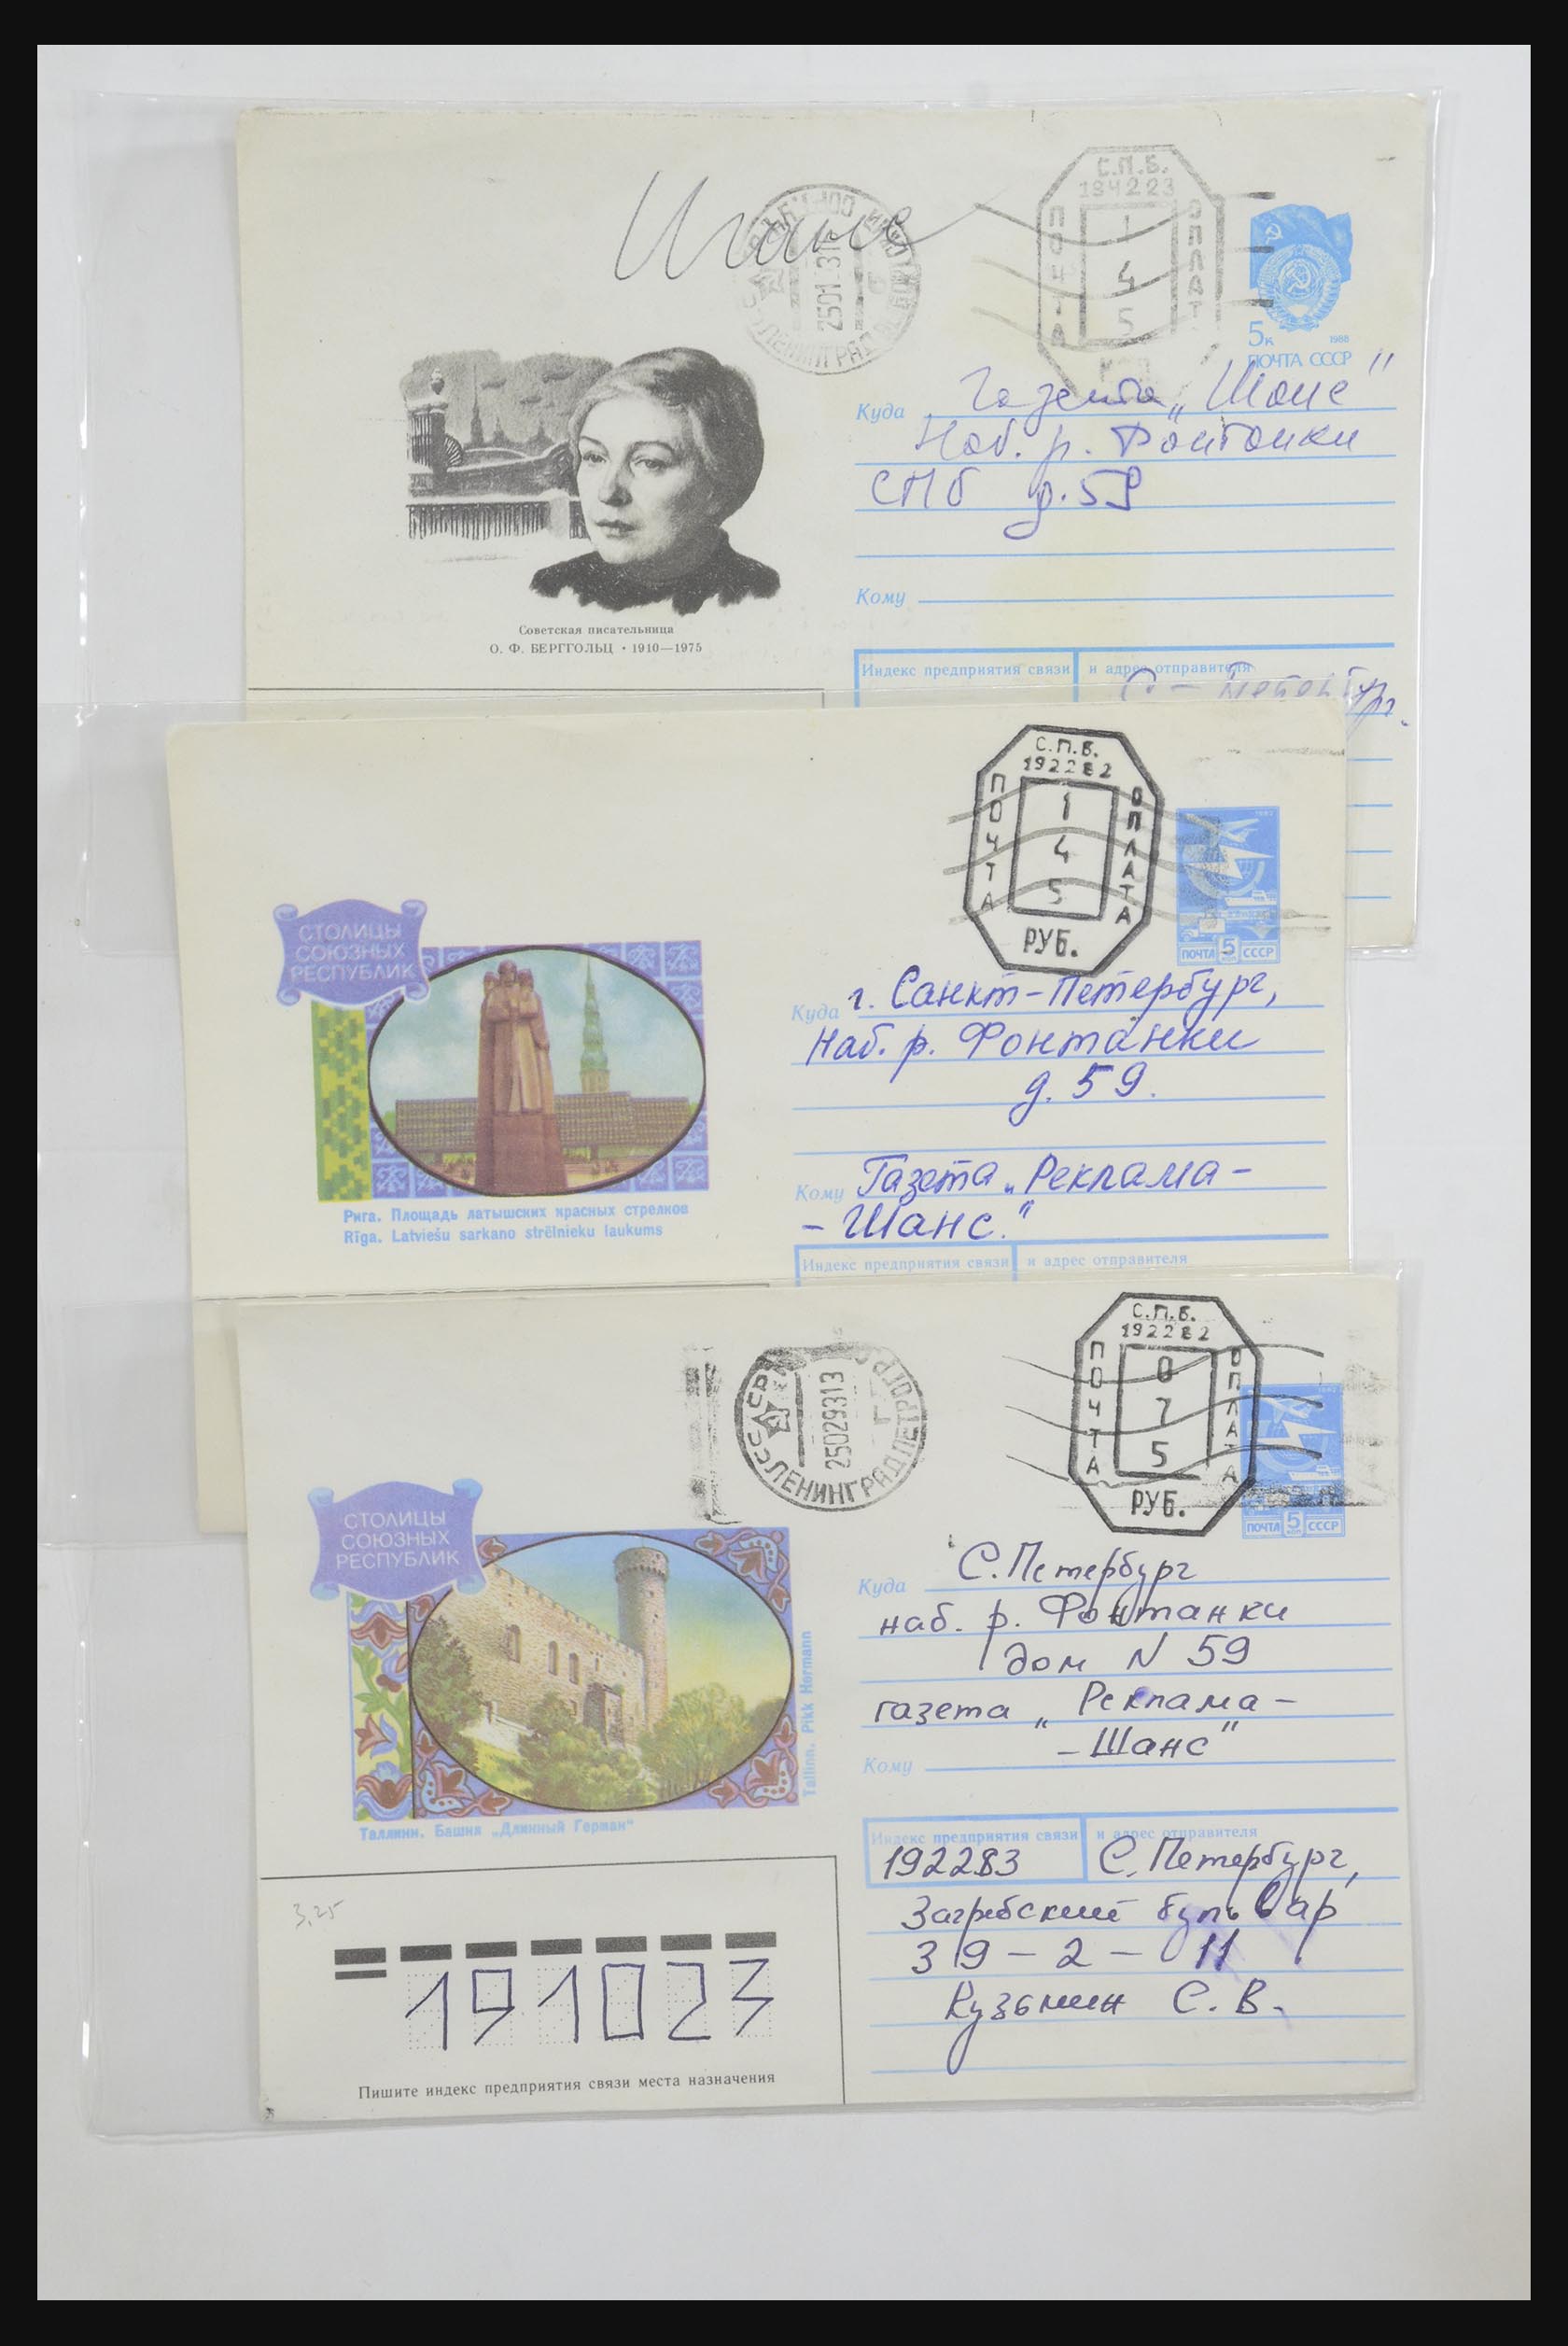 Шанс
С.П.Б.
194223
ПОЧТА
ОПЛАТ
1
4
5
250193
ЛЕНИНГРАД
5к
1988
ПОЧТА СССР
Куда Газета „Шанс"
Наб. р. Фонтанки
СПб д. 59
Кому
Советская писательница
О. Ф. БЕРГГОЛЬЦ • 1910—1975
Индекс предприятия связи
и адрес отправителя
С.П.Б.
192282
ПОЧТА
ОПЛАТА
1
4
5
РУБ.
1982
ПОЧТА 5 КОП СССР
СТОЛИЦЫ
СОЮЗНЫХ
РЕСПУБЛИК
Рига. Площадь латышских красных стрелков
Rīga. Latviešu sarkano strēlnieku laukums
Куда г. Санкт-Петербург,
Наб. р. Фонтанки
д. 59.
Кому Газета „Реклама-
- Шанс."
Индекс предприятия связи
и адрес отправителя
С.П.Б.
192282
ПОЧТА
ОПЛАТА
0
7
5
РУБ.
СССР
25029313
ЛЕНИНГРАД
ПОЧТА 5 СССР
СТОЛИЦЫ
СОЮЗНЫХ
РЕСПУБЛИК
Tallinn. Pikk Hermann
Таллин. Башня „Длинный Герман"
Куда С. Петербург
наб. р. Фонтанки
дом N 59
газета „Реклама-
- Шанс"
Кому
Индекс предприятия связи
и адрес отправителя
192283
С. Петербург,
Загребский бульвар
39 - 2 - 11
Кузьмин С. В.
3,25
191023
Пишите индекс предприятия связи места назначения